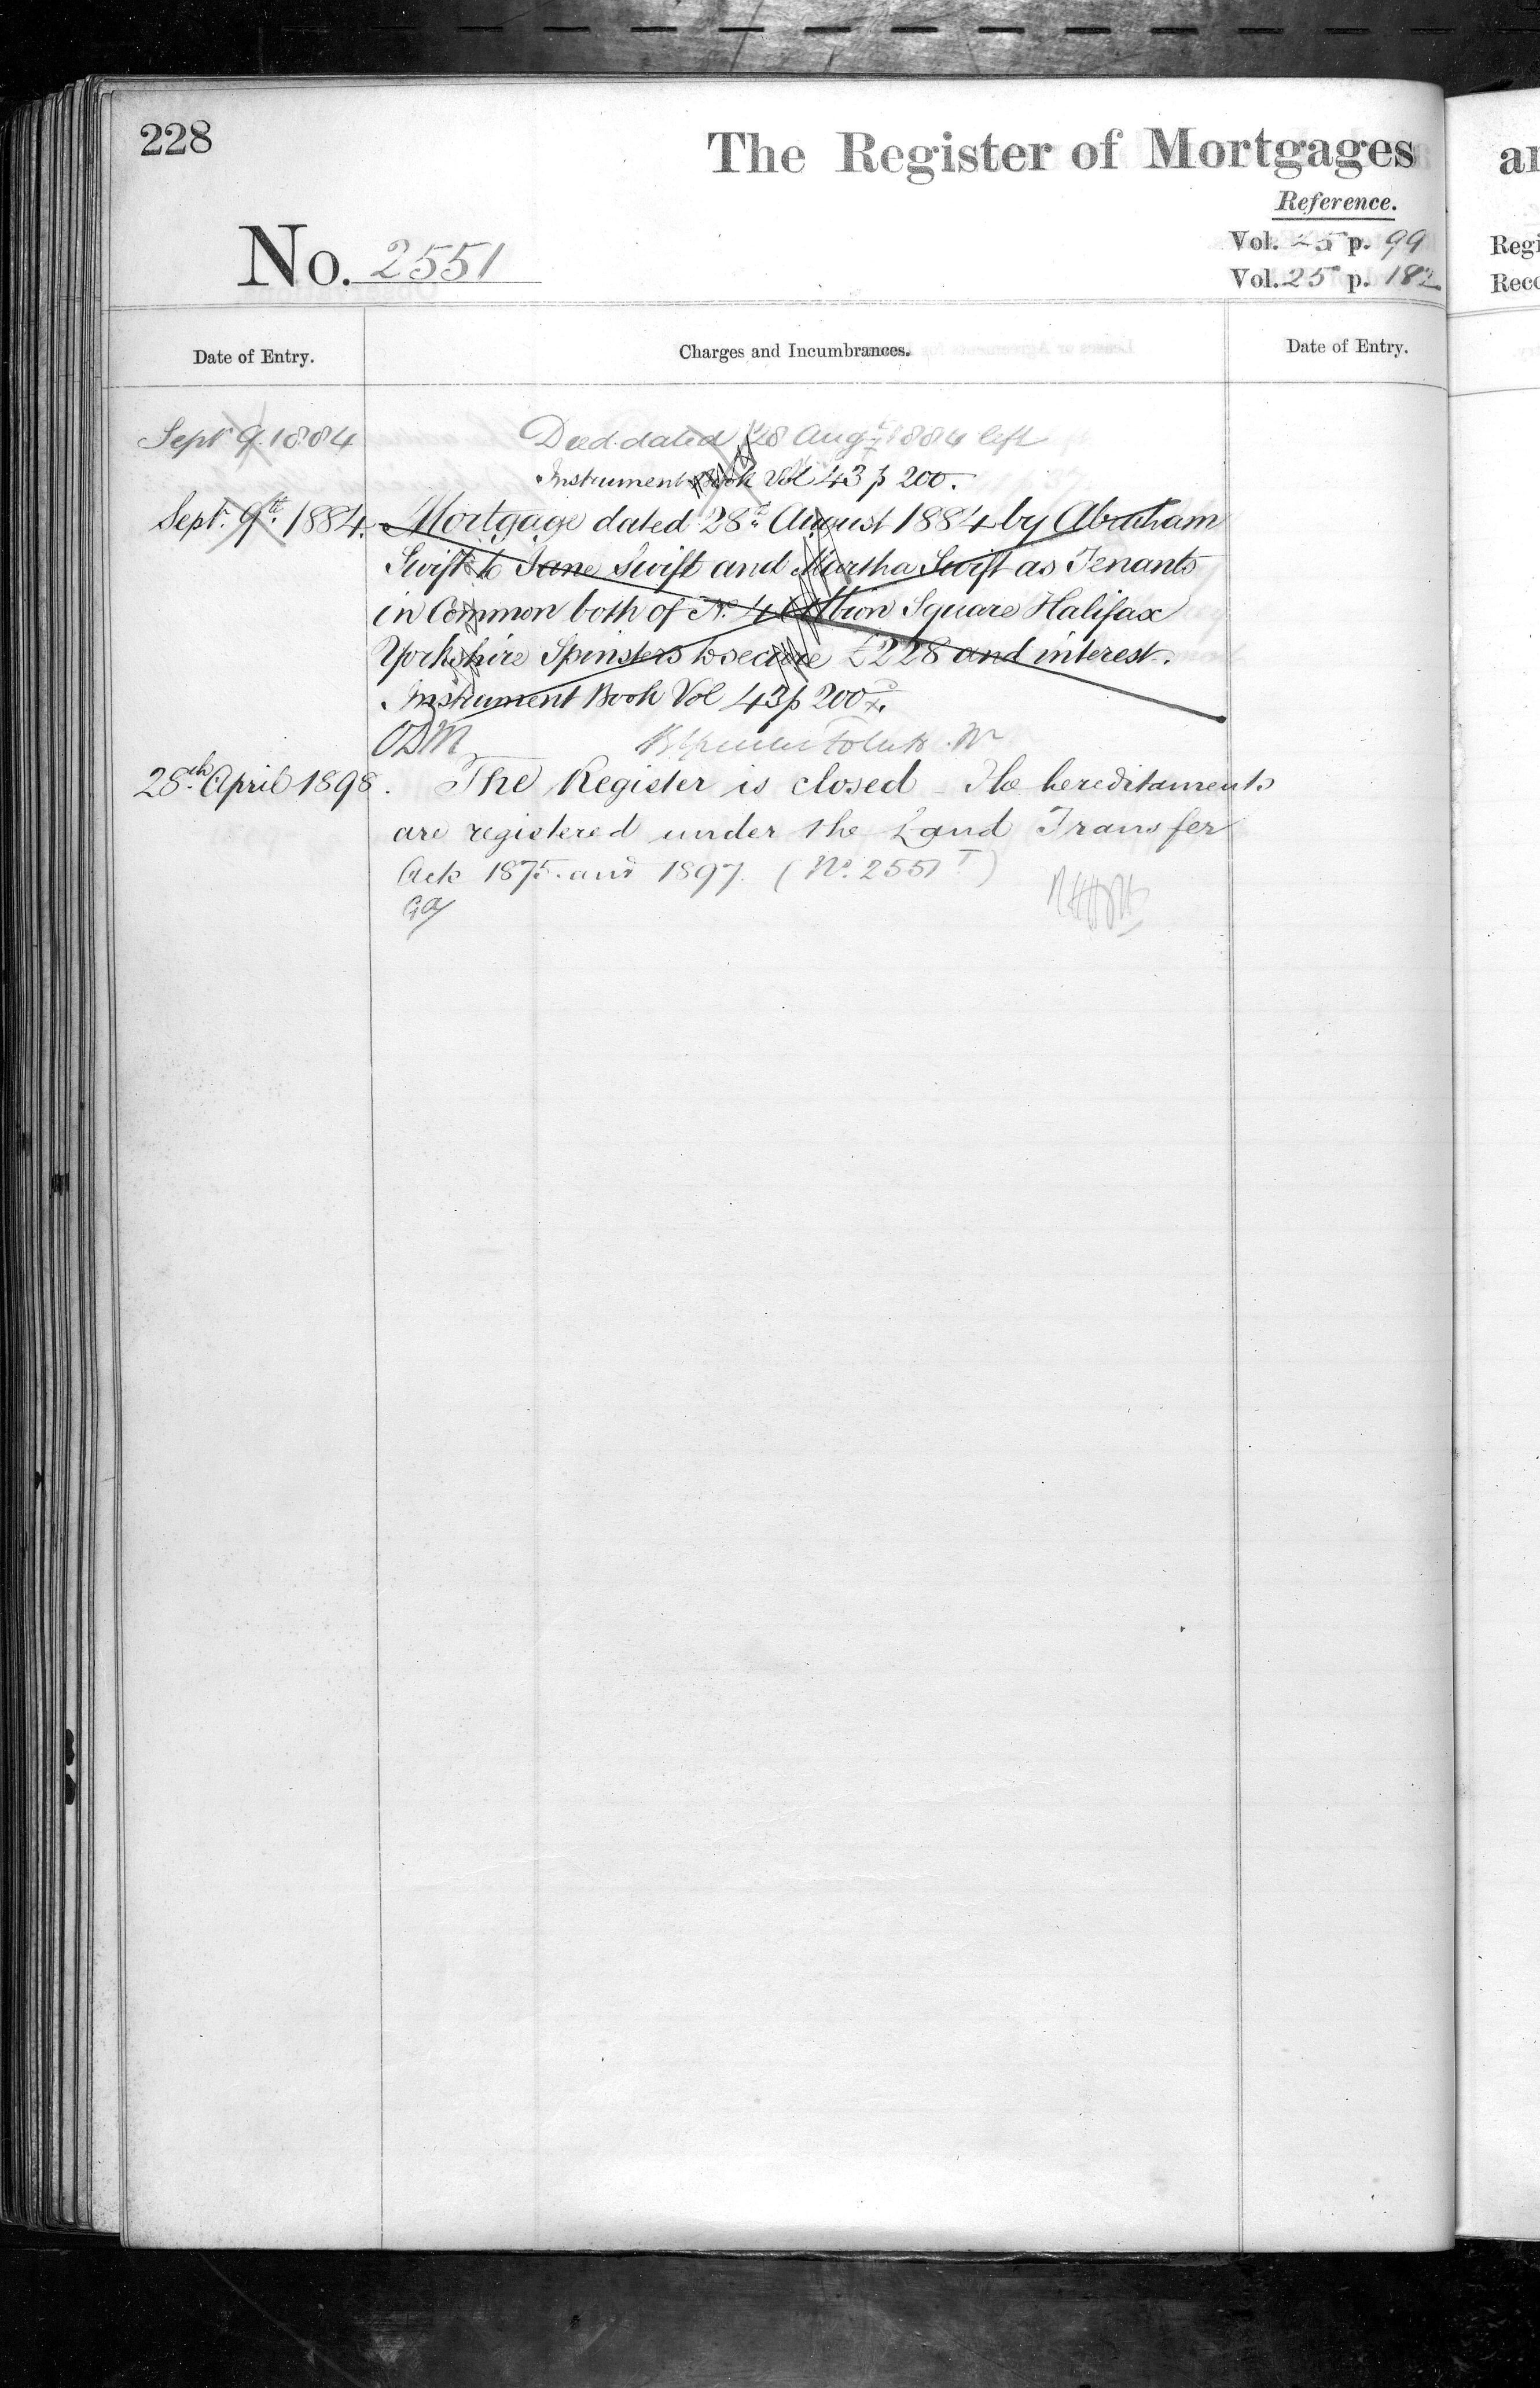 228
The Register of Mortgages
Reference.
Vol. 25 p. 99
No. 2551
Vol. 25 p. 182
Regi
Reco
Date of Entry.
Charges and Incumbrances.
Date of Entry.
Sept 9. 1884
Deed dated 28 Augt 1884 left
Instrument Book Vol 43 p 200.
Sept. 9th. 1884.
Mortgage dated 28th August 1884 by Abraham
Swift to Jane Swift and Martha Swift as Tenants
in Common both of No. 4 Albion Square Halifax
Yorkshire Spinsters to secure £228 and interest.
Instrument Book Vol 43 p 200
28th April 1898.
The Register is closed - The hereditaments
are registered under the Land Transfer
Acts 1875 and 1897. (No. 2551 T)